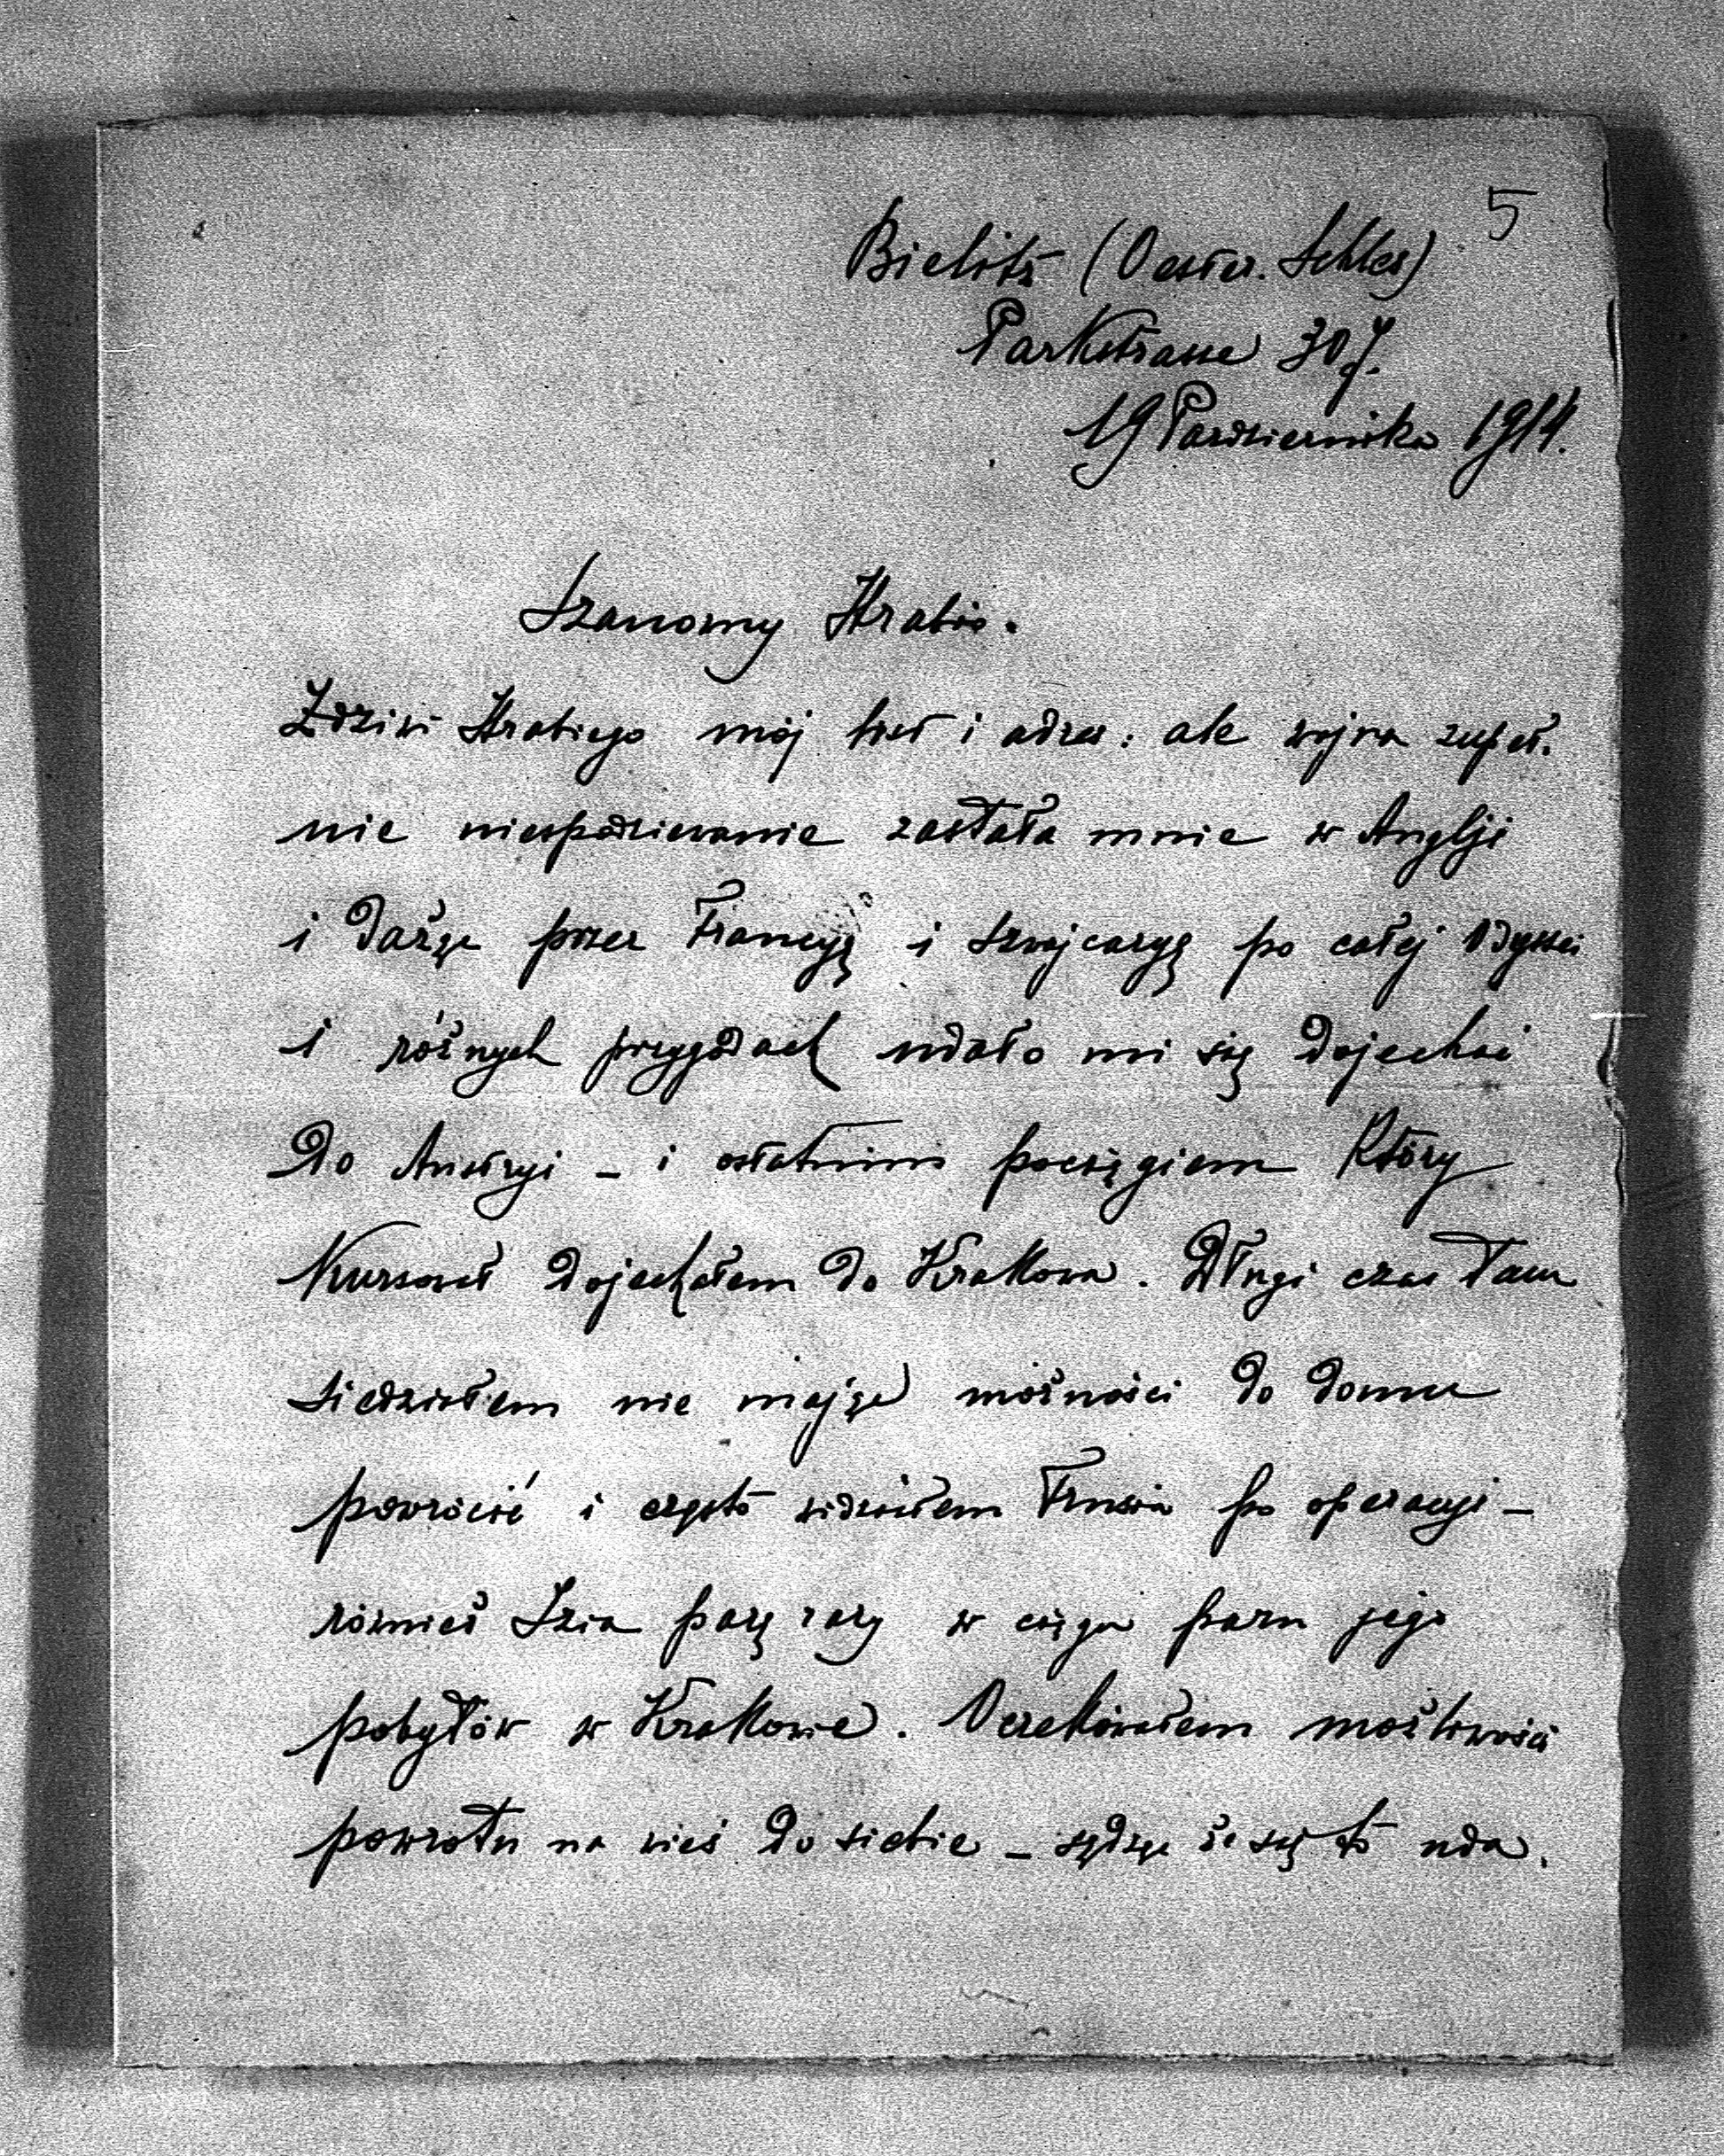 5
Bielitz (Oester. Schles)
Parkstrasse 30
19 Października 1914.
Szanowny Hrabio.
Zdziwi Hrabiego mój list i adres: ale wojna zupeł.
nie niespodziewanie zastała mnie w Anglji
i dążąc przez Francyę i Szwajcaryę po całej Odyssei
i różnych przygodach udało mi się dojechać
do Austryi – i ostatnim pociągiem który
kursował dojechałem do Krakowa. Długi czas tam
siedziałem nie mając możności do domu
powrócić i często widziałem po operacyi –
również parę razy w ciągu paru jego
pobytów w Krakowie. Oczekiwałem możliwości
powrotu na wieś do siebie – sądząc że się to uda.